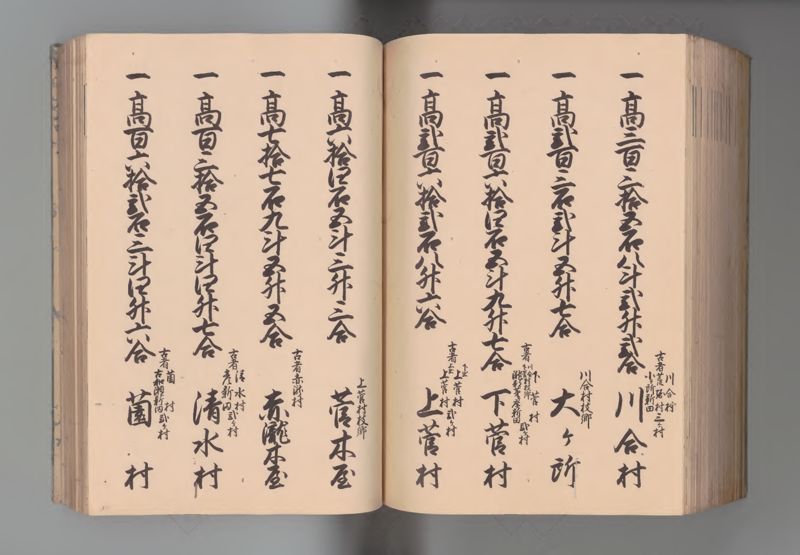 一 高三百三拾五石八斗弐升弐合
川合村
古者菅沼村三ヶ村
小所新田
川合村
一 高弐百三石弐斗五升七合
川合村枝郷
大ヶ所
一 高弐百六拾四石五斗九升七合
下菅村
古者
新田弐ヶ村
下菅村
一 高弐百六拾弐石八升六合
上菅村
古者
上菅村弐ヶ村
上菅村
一 高六拾四石五斗三升三合
上菅村枝郷
菅木屋
一 高七拾七石九斗五升五合
古者赤渋村
赤瀧木屋
一 高百三拾五石四斗四升七合
清水村
古者
新田弐ヶ村
清水村
一 高百六拾弐石三斗四升六合
薗村
古者
新田弐ヶ村
薗村